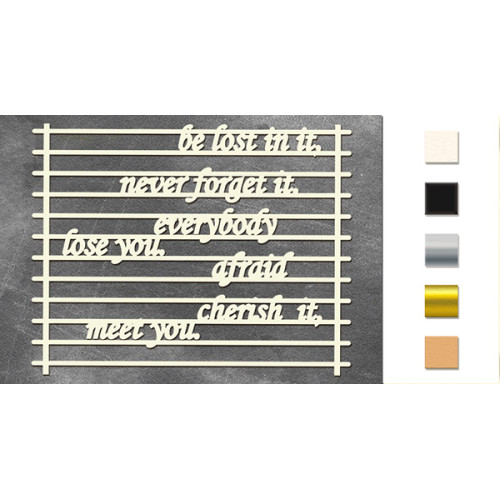 be lost in it,
never forget it.
everybody
lose you.
afraid
cherish it,
meet you.